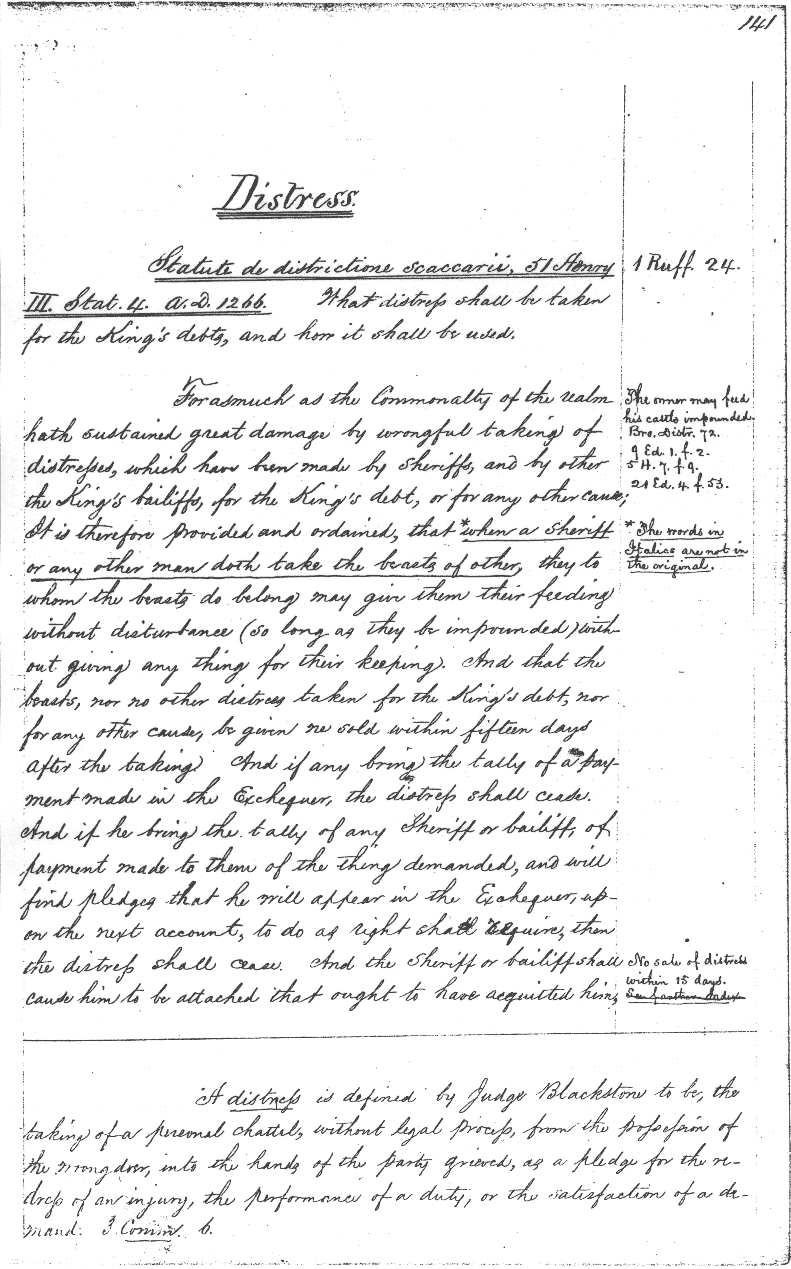 141
Distress.
Statute de districtione scaccarii, 51 Henry
III. Stat. 4. A.D. 1266. What distress shall be taken
for the King's debts, and how it shall be used.
1 Ruff. 24.
Forasmuch as the Commonalty of the realm
hath sustained great damage by wrongful taking of
distresses, which have been made by Sheriffs, and by other
the King's bailiffs, for the King's debt, or for any other cause;
It is therefore provided and ordained, that *when a Sheriff
or any other man doth take the beasts of other, they to
whom the beasts do belong may give them their feeding
without disturbance (so long as they be impounded) with-
out giving any thing for their keeping. And that the
beasts, nor no other distress taken for the King's debt, nor
for any other cause, be given ne sold within fifteen days
after the taking. And if any bring the tally of a pay-
ment made in the Exchequer, the distress shall cease.
And if he bring the tally of any Sheriff or bailiff, of
payment made to them of the thing demanded, and will
find pledges that he will appear in the Exchequer, up-
on the next account, to do as right shall require, then
the distress shall cease. And the Sheriff or bailiff shall
cause him to be attached that ought to have acquitted him,
The owner may feed
his cattle impounded.
Bro. Distr. 72.
9 Ed. 1. f. 2.
5 H. 7. f. 9.
21 Ed. 4. f. 53.
* The words in
Italics are not in
the original.
No sale of distress
within 15 days.
See Index
A distress is defined by Judge Blackstone to be, the
taking of a personal chattal, without legal process, from the possession of
the wrongdoer, into the hands of the party grieved, as a pledge for the re-
dress of an injury, the performance of a duty, or the satisfaction of a de-
mand. 3 Comm. 6.